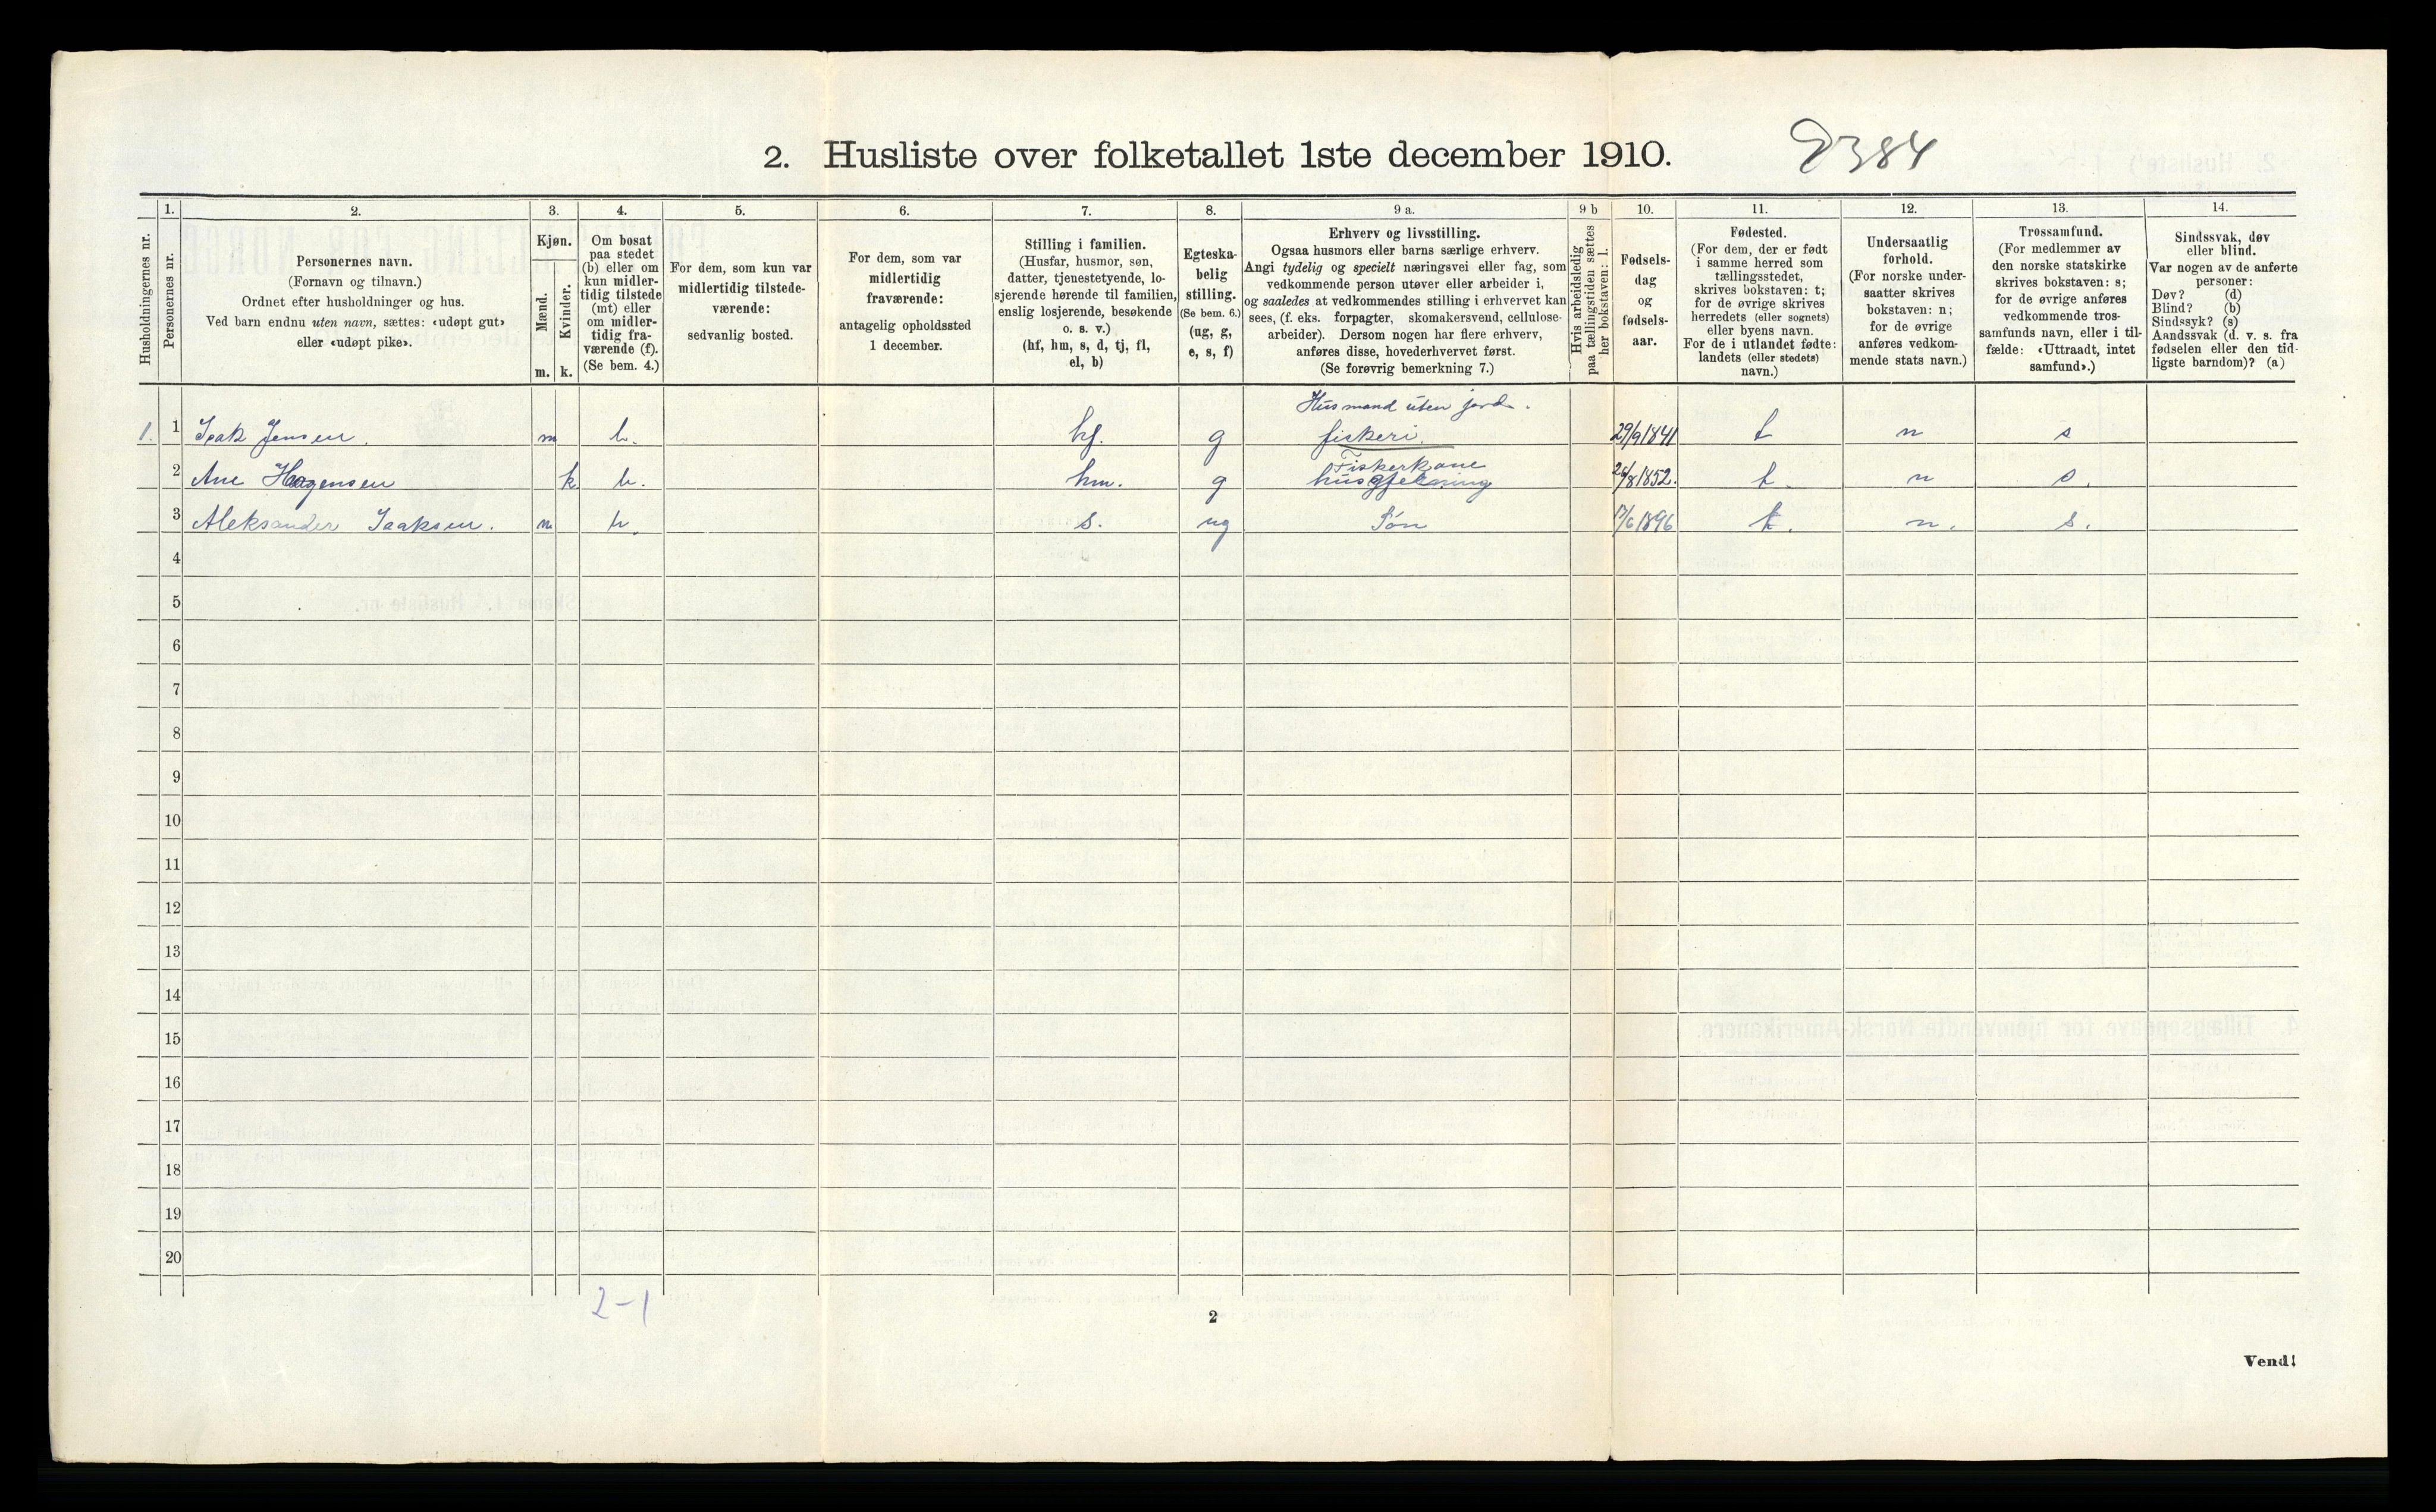 2. Husliste over folketallet 1ste december 1910.
Husholdningernes nr.
1.
Personernes nr.
2.
Personernes navn.
(Fornavn og tilnavn.)
Ordnet efter husholdninger og hus.
Ved barn endnu uten navn, sættes: «udøpt gut»
eller «udøpt pike».
3.
Kjøn.
Mænd.
Kvinder.
m. k.
4.
Om bosat
paa stedet
(b) eller om
kun midler-
tidig tilstede
(mt) eller
om midler-
tidig fra-
værende (f).
(Se bem. 4.)
5.
For dem, som kun var
midlertidig tilstede-
værende:
sedvanlig bosted.
6.
For dem, som var
midlertidig
fraværende:
antagelig opholdssted
1 december.
7.
Stilling i familien.
(Husfar, husmor, søn,
datter, tjenestetyende, lo-
sjerende hørende til familien,
enslig losjerende, besøkende
o. s. v.)
(hf, hm, s, d, tj, fl,
el, b)
8.
Egteska-
belig
stilling.
(Se bem. 6.)
(ug, g,
e, s, f)
9 a.
Erhverv og livsstilling.
Ogsaa husmors eller barns særlige erhverv.
Angi tydelig og specielt næringsvei eller fag, som
vedkommende person utøver eller arbeider i,
og saaledes at vedkommendes stilling i erhvervet kan
sees, (f. eks. forpagter, skomakersvend, cellulose-
arbeider). Dersom nogen har flere erhverv,
anføres disse, hovederhvervet først.
(Se forøvrig bemerkning 7.)
9 b
Hvis arbeidsledig
paa tællingstiden sættes
her bokstaven: l.
10.
Fødsels-
dag
og
fødsels-
aar.
11.
Fødested.
(For dem, der er født
i samme herred som
tællingsstedet,
skrives bokstaven: t;
for de øvrige skrives
herredets (eller sognets)
eller byens navn.
For de i utlandet fødte:
landets (eller stedets)
navn.)
12.
Undersaatlig
forhold.
(For norske under-
saatter skrives
bokstaven: n;
for de øvrige
anføres vedkom-
mende stats navn.)
13.
Trossamfund.
(For medlemmer av
den norske statskirke
skrives bokstaven: s;
for de øvrige anføres
vedkommende tros-
samfunds navn, eller i til-
fælde: «Uttraadt, intet
samfund».)
14.
Sindssvak, døv
eller blind.
Var nogen av de anførte
personer:
Døv? (d)
Blind? (b)
Sindssyk? (s)
Aandssvak (d. v. s. fra
fødselen eller den tid-
ligste barndom)? (a)
Husmand uten jord.
1. 1 Isak Jensen. m b. hf. g fiskeri. 29/9 1841 t n s
Fiskerkone
2 Ane Hagensen k b. hm. g 26/8 1852. t. n s.
3 Aleksander Isaksen. m b. s. ug Søn 17/6 1896 t. n. s.
4
5
6
7
8
9
10
11
12
13
14
15
16
17
18
19
20
2-1
2
Vend!